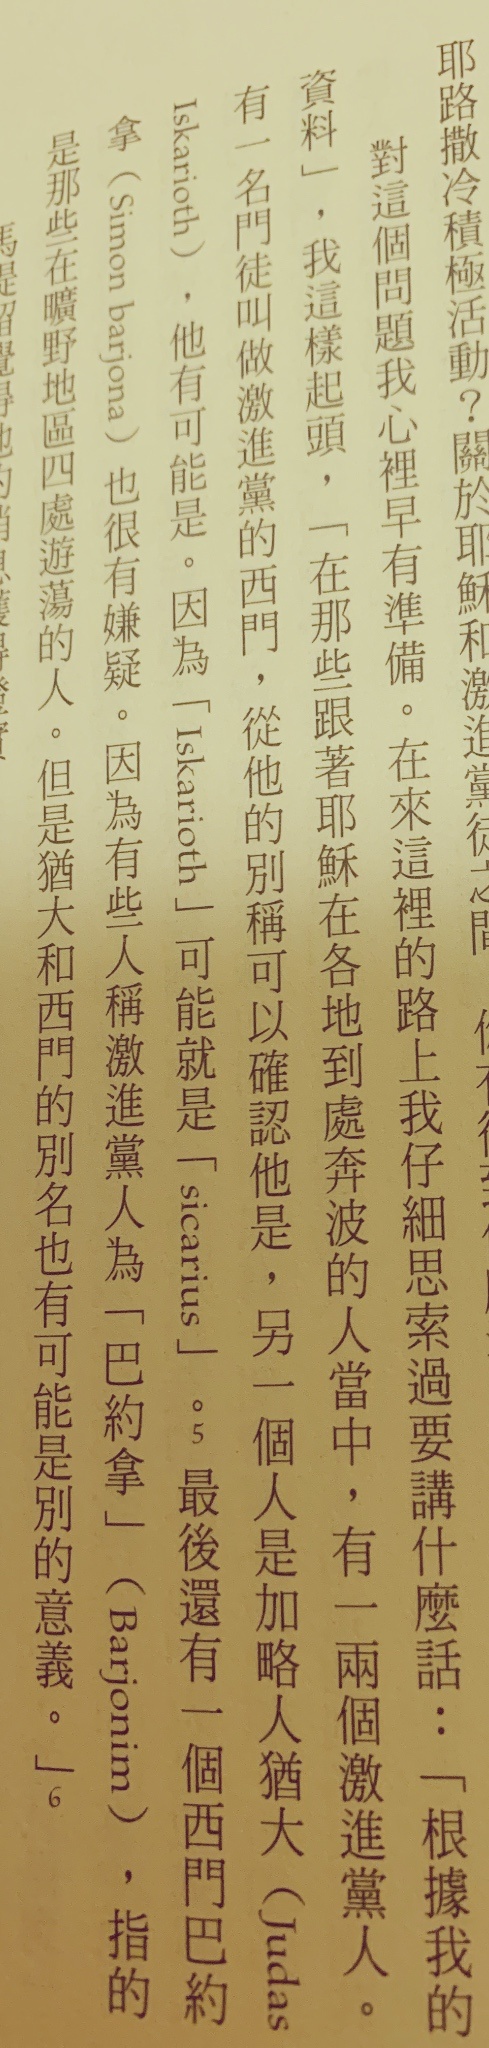 耶路撒冷積極活動？關於耶穌和激進黨徒之間
對這個問題我心裡早有準備。在來這裡的路上我仔細思索過要講什麼話：「根據我的
資料」，我這樣起頭，「在那些跟著耶穌在各地到處奔波的人當中，有一兩個激進黨人。
有一名門徒叫做激進黨的西門，從他的別稱可以確認他是，另一個人是加略人猶大（Judas
Iskarioth），他有可能是。因為「Iskarioth」可能就是「sicarius」。5最後還有一個西門巴約
拿（Simon barjona）也很有嫌疑。因為有些人稱激進黨人為「巴約拿」（Barjonim），指的
是那些在曠野地區四處遊蕩的人。但是猶大和西門的別名也有可能是別的意義。」6